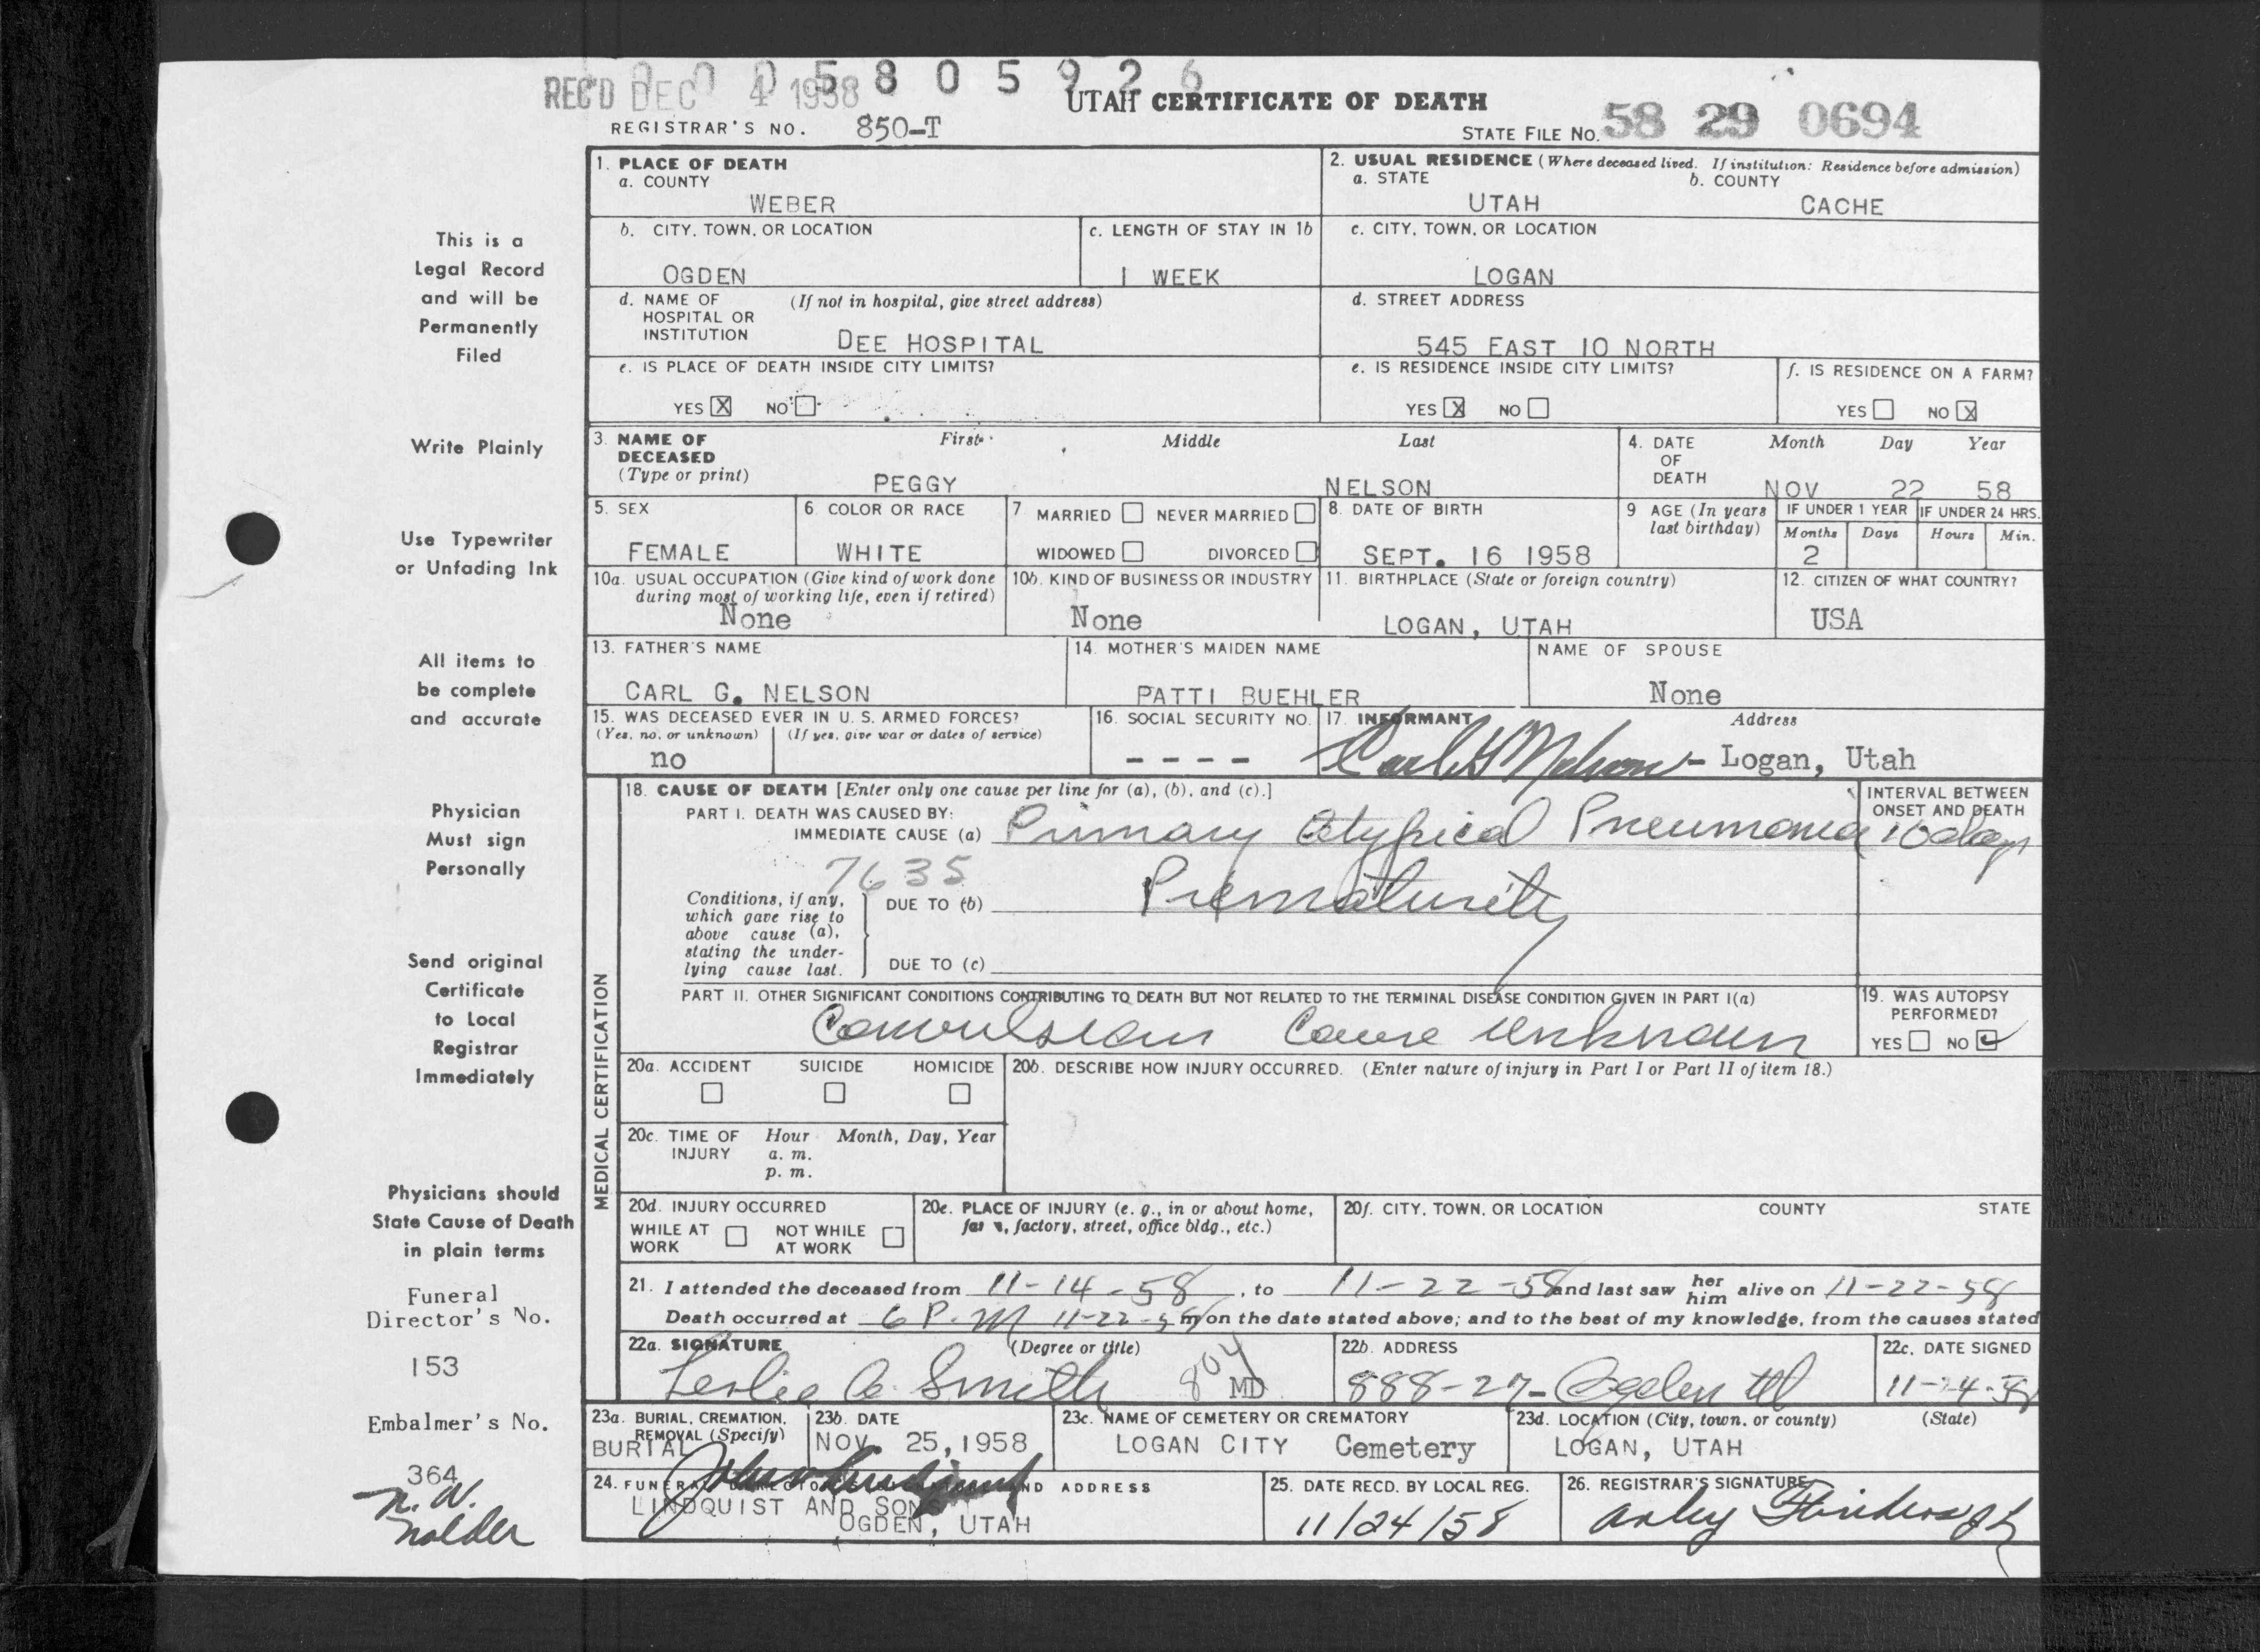 0 0 0 5 8 0 5 9 2 6
REC'D DEC 4 1958 UTAH CERTIFICATE OF DEATH
REGISTRAR'S NO. 850-T STATE FILE NO. 58 29 0694
1. PLACE OF DEATH 2. USUAL RESIDENCE (Where deceased lived. If institution: Residence before admission)
a. COUNTY a. STATE b. COUNTY
WEBER UTAH CACHE
b. CITY, TOWN, OR LOCATION c. LENGTH OF STAY IN 1b c. CITY, TOWN, OR LOCATION
OGDEN 1 WEEK LOGAN
d. NAME OF HOSPITAL OR INSTITUTION (If not in hospital, give street address) d. STREET ADDRESS
DEE HOSPITAL 545 EAST 10 NORTH
e. IS PLACE OF DEATH INSIDE CITY LIMITS? e. IS RESIDENCE INSIDE CITY LIMITS? f. IS RESIDENCE ON A FARM?
YES X NO YES X NO YES NO X
3. NAME OF DECEASED (Type or print) First Middle Last 4. DATE OF DEATH Month Day Year
PEGGY NELSON NOV 22 58
5. SEX 6. COLOR OR RACE 7. MARRIED NEVER MARRIED 8. DATE OF BIRTH 9. AGE (In years last birthday) IF UNDER 1 YEAR IF UNDER 24 HRS.
WIDOWED DIVORCED Months Days Hours Min.
FEMALE WHITE SEPT. 16 1958 2
10a. USUAL OCCUPATION (Give kind of work done during most of working life, even if retired) 10b. KIND OF BUSINESS OR INDUSTRY 11. BIRTHPLACE (State or foreign country) 12. CITIZEN OF WHAT COUNTRY?
None None LOGAN, UTAH USA
13. FATHER'S NAME 14. MOTHER'S MAIDEN NAME NAME OF SPOUSE
CARL G. NELSON PATTI BUEHLER None
15. WAS DECEASED EVER IN U. S. ARMED FORCES? 16. SOCIAL SECURITY NO. 17. INFORMANT Address
(Yes, no, or unknown) (If yes, give war or dates of service)
no - - - - Carl G Nelson - Logan, Utah
MEDICAL CERTIFICATION
18. CAUSE OF DEATH [Enter only one cause per line for (a), (b), and (c).] INTERVAL BETWEEN ONSET AND DEATH
PART I. DEATH WAS CAUSED BY:
IMMEDIATE CAUSE (a) Primary Atypical Pneumonia 10 days
7635
Conditions, if any, which gave rise to above cause (a), stating the underlying cause last.
DUE TO (b) Prematurity
DUE TO (c)
PART II. OTHER SIGNIFICANT CONDITIONS CONTRIBUTING TO DEATH BUT NOT RELATED TO THE TERMINAL DISEASE CONDITION GIVEN IN PART I(a) 19. WAS AUTOPSY PERFORMED?
Convulsions Cause unknown YES NO
20a. ACCIDENT SUICIDE HOMICIDE 20b. DESCRIBE HOW INJURY OCCURRED. (Enter nature of injury in Part I or Part II of item 18.)
20c. TIME OF INJURY Hour Month, Day, Year
a. m.
p. m.
20d. INJURY OCCURRED 20e. PLACE OF INJURY (e. g., in or about home, farm, factory, street, office bldg., etc.) 20f. CITY, TOWN, OR LOCATION COUNTY STATE
WHILE AT WORK NOT WHILE AT WORK
21. I attended the deceased from 11-14-58, to 11-22-58 and last saw her him alive on 11-22-58
Death occurred at 6 P.M 11-22-58 m, on the date stated above; and to the best of my knowledge, from the causes stated
22a. SIGNATURE (Degree or title) 22b. ADDRESS 22c. DATE SIGNED
Leslie A. Smith 804 MD 888-27- Ogden Ut 11-24-58
23a. BURIAL, CREMATION, REMOVAL (Specify) 23b. DATE 23c. NAME OF CEMETERY OR CREMATORY 23d. LOCATION (City, town, or county) (State)
BURIAL NOV. 25, 1958 LOGAN CITY Cemetery LOGAN, UTAH
24. FUNERAL DIRECTOR AND ADDRESS 25. DATE RECD. BY LOCAL REG. 26. REGISTRAR'S SIGNATURE
LINDQUIST AND SONS
OGDEN, UTAH 11/24/58
This is a
Legal Record
and will be
Permanently
Filed
Write Plainly
Use Typewriter
or Unfading Ink
All items to
be complete
and accurate
Physician
Must sign
Personally
Send original
Certificate
to Local
Registrar
Immediately
Physicians should
State Cause of Death
in plain terms
Funeral
Director's No.
153
Embalmer's No.
364
N. W.
Nolder